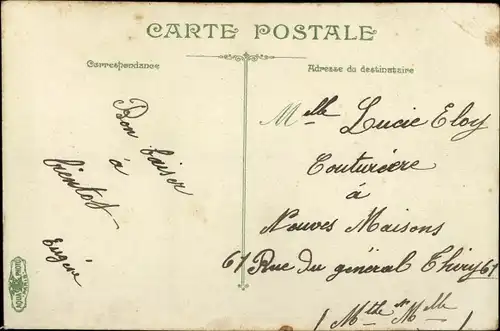 CARTE POSTALE
Correspondance
Adresse du destinataire
Bon baiser
à
bientot
Eugène
Melle Lucie Eloy
Couturière
à
Nouves Maisons
61 Rue du général Thiry 61
(Mthe & Melle)
AQUA PHOTO